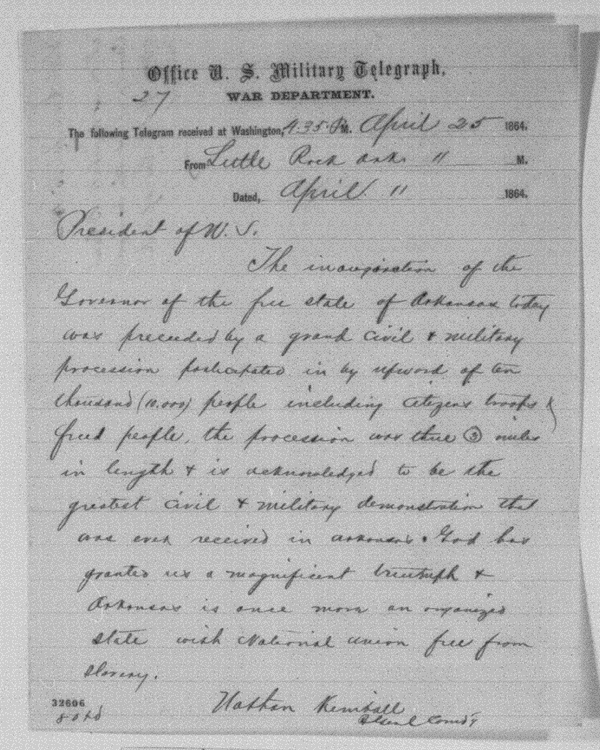 Office U. S. Military Telegraph,
27
WAR DEPARTMENT.
The following Telegram received at Washington, 4.35 P M. April 25 1864.
From Little Rock Ark. 11 M.
Dated, April 11 1864.
President of U. S.
The inauguration of the
Governor of the free state of Arkansas today
was preceeded by a grand civil & military
procession participated in by upward of ten
thousand (10.000) people including citizens troops &
freed people, the procession was three (3) miles
in length & is acknowledged to be the
greatest civil & military demonstration that
was ever received in arkansas. God has
granted us a magnificent triumph &
Arkansas is once more an organized
state with National Union free from
slavery.
Nathan Kimball
32606